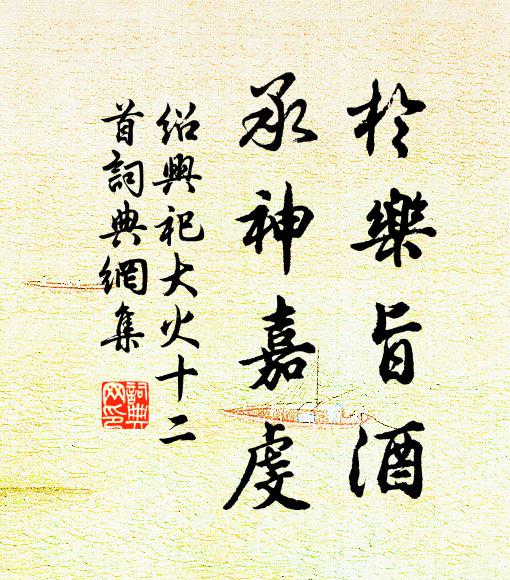 於樂旨酒
承神嘉虔
紹興祀大火十二
首詞典網集
詞典網印